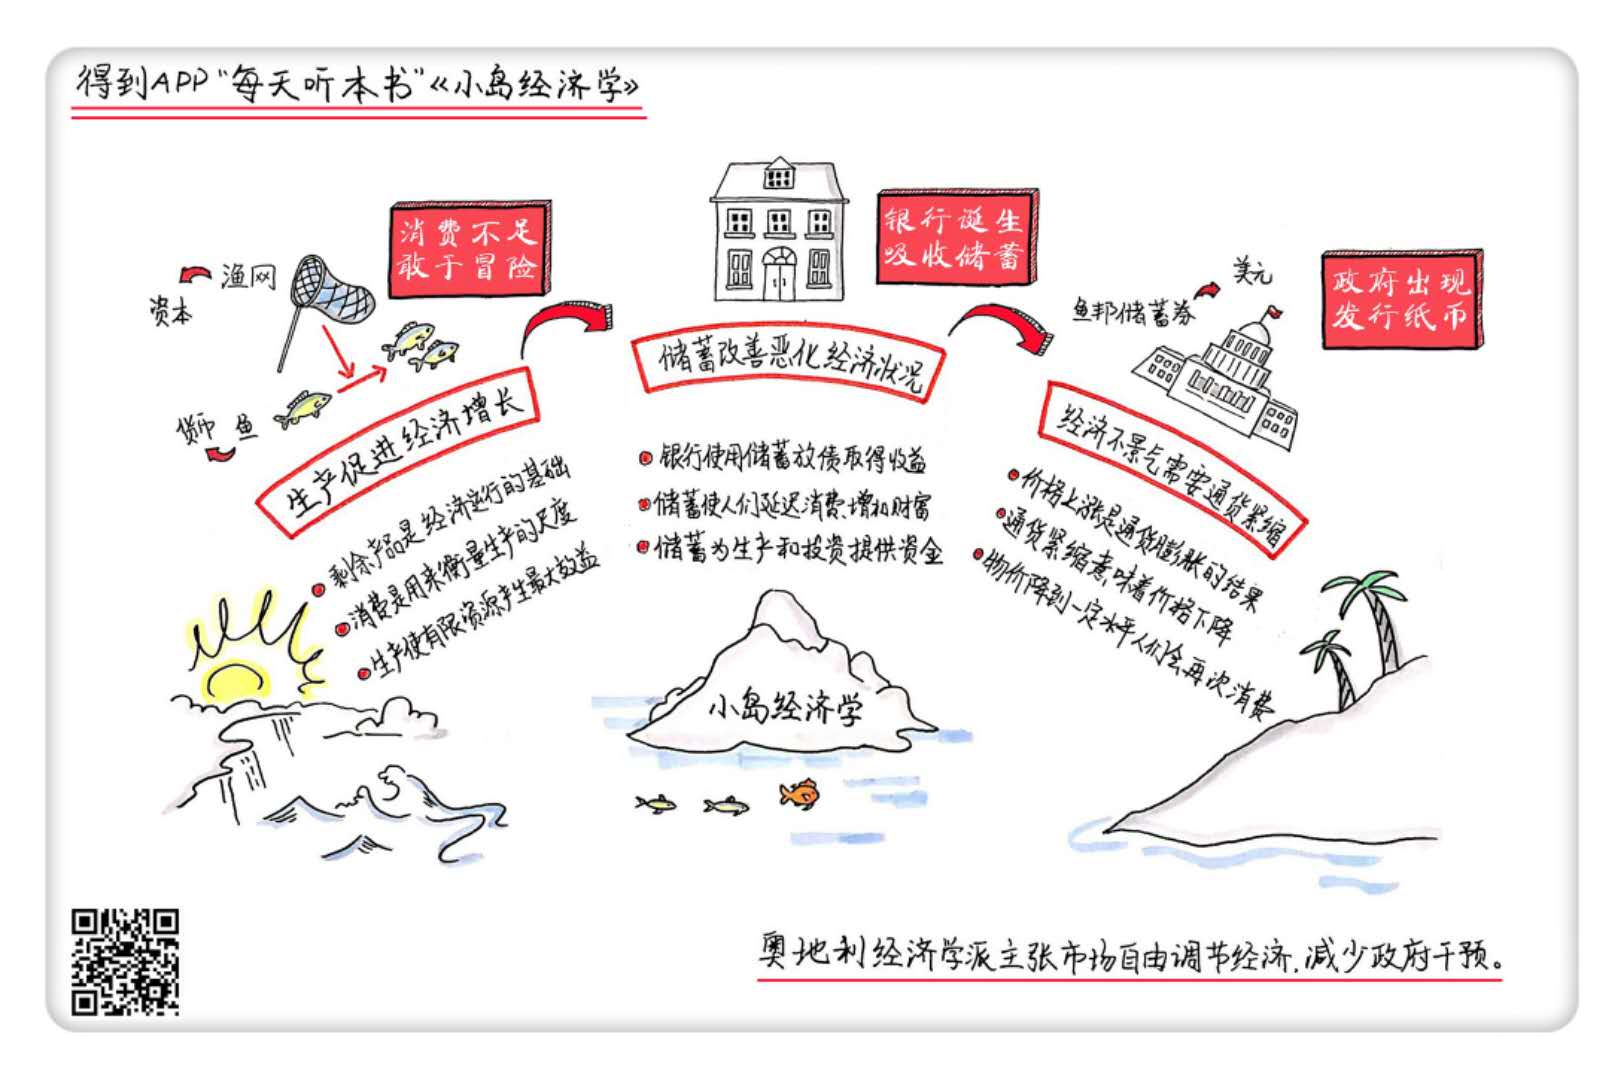 得到APP“每天听本书”《小岛经济学》
消费不足
敢于冒险
渔网
资本
货币 鱼
生产促进经济增长
剩余产品是经济运行的基础
消费是用来衡量生产的尺度
生产使有限资源产生最大效益
银行诞生
吸收储蓄
储蓄改善恶化经济状况
银行使用储蓄放债取得收益
储蓄使人们延迟消费、增加财富
储蓄为生产和投资提供资金
政府出现
发行纸币
美元
鱼邦储蓄券
经济不景气需要通货紧缩
价格上涨是通货膨胀的结果
通货紧缩意味着价格下降
物价降到一定水平人们会再次消费
小岛经济学
奥地利经济学派主张市场自由调节经济，减少政府干预。